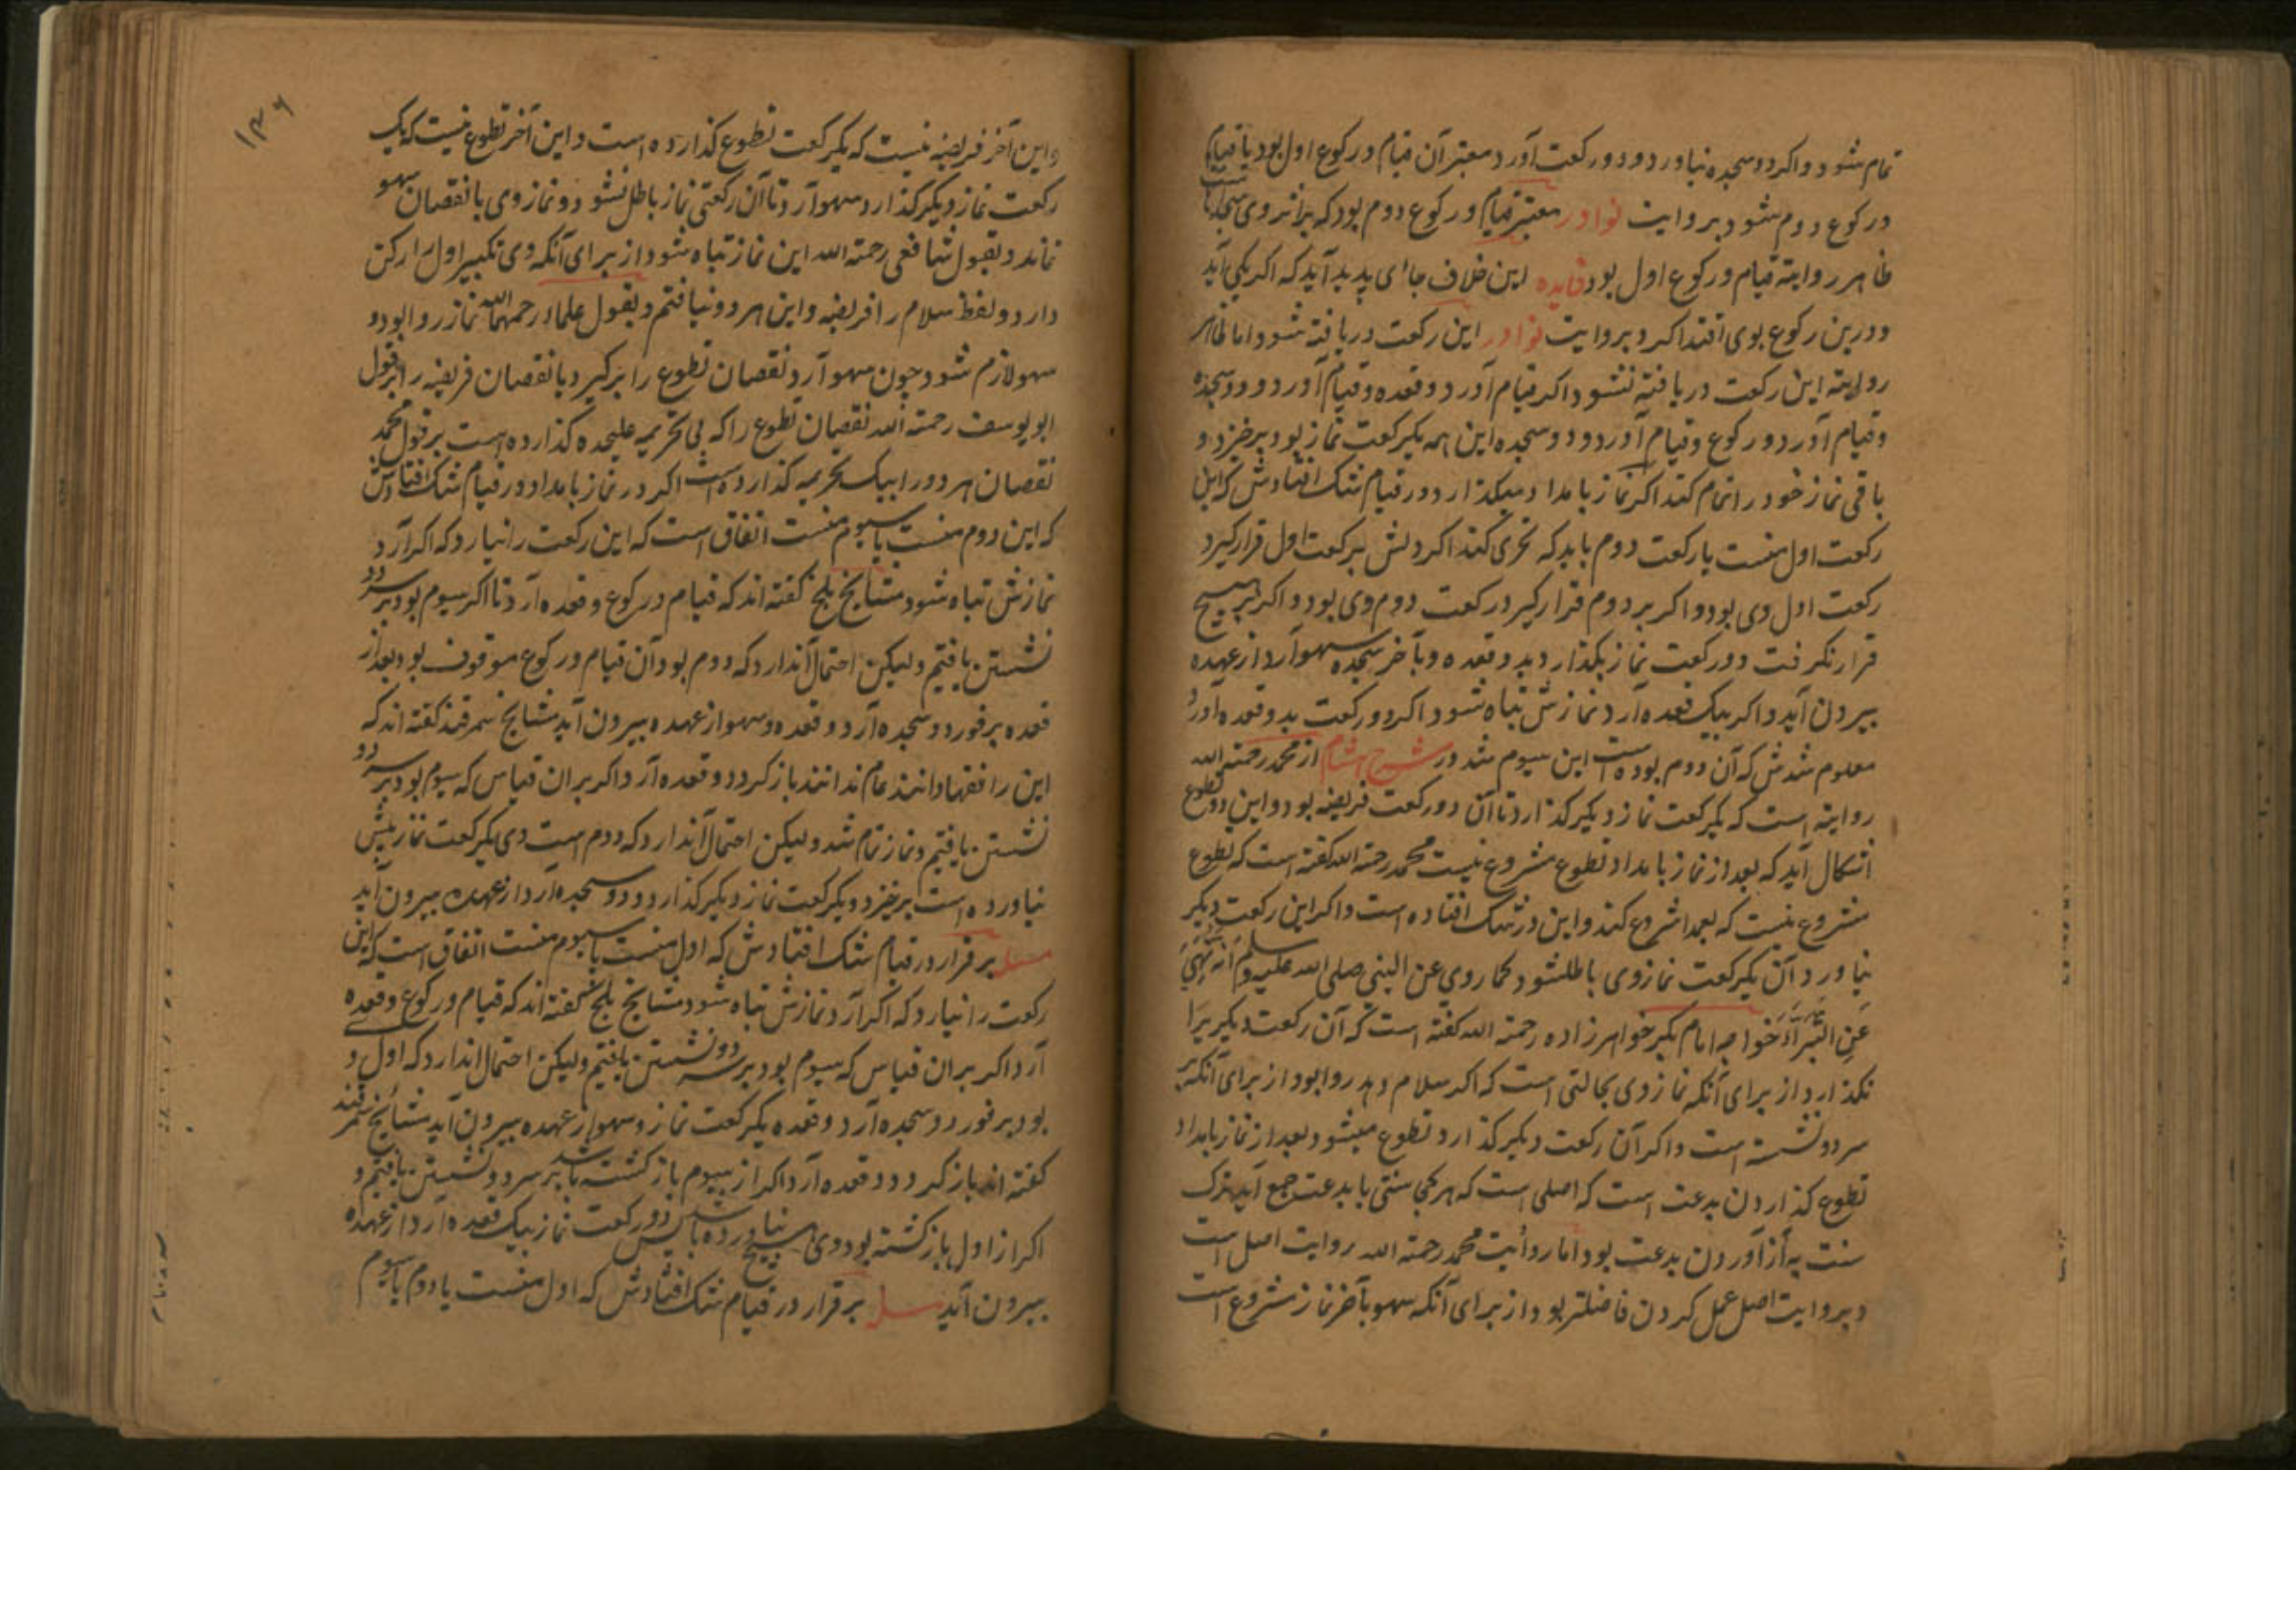 تمام شود و اکر دو سجده نیاورد و دو رکعت آورد معتبر آن قیام و رکوع اول بود یا قیام
و رکوع دوم شود بروایت نوادر معتبر قیام و رکوع دوم بود که بر اثر وی سجده است
ظاهر روایته قیام و رکوع اول بود فایده این خلاف جائی پدید آید که اکر یکی آید
و درین رکوع بوی اقتدا کرد بروایت نوادر این رکعت دریافته شود و اما ظاهر
روایته این رکعت دریافته نشود و اکر قیام آورد و قعده و قیام آورد و دو سجده
و قیام آورد و رکوع و قیام آورد و دو سجده این همه یکرکعت نماز بود برخیزد و
باقی نماز خود را تمام کند اکر نماز بامداد میکذارد و در قیام شک افتادش که این
رکعت اول منست یا رکعت دوم باید که تحری کند اکر دلش بر رکعت اول قرار کیرد
رکعت اول وی بود و اکر بر دوم قرار کیرد رکعت دوم وی بود و اکر بر هیچ
قرار نکرفت دو رکعت نماز بکذارد بدو قعده و بآخر سجده سهو آرد از عهده
بیرون آید و اکر بیک قعده آرد نمازش تباه شود و اکر دو رکعت بدو قعده آورد
معلوم شدش که آن دوم بوده است این سیوم شد در شرح هشام از محمد رحمته الله
روایته است که یکرکعت نماز دیکر کذارد تا آن دو رکعت فریضه بود و این دو تطوع
اشکال آید که بعد از نماز بامداد تطوع مشروع نیست محمد رحمته الله کفته است که تطوع
مشروع نیست که بعمدا شروع کند و این در شک افتاده است و اکر این رکعت دیکر
نیاورد آن یکرکعت نماز وی باطل شود کما روی عن النبی صلی الله علیه وسلم انه نهی
عن البتراء خواجه امام بکر خواهرزاده رحمته الله کفته است که آن رکعت دیکر را
نکذارد از برای آنکه نماز وی بحالتی است که اکر سلام دهد روا بود از برای آنکه بر
سر دو نشسته است و اکر آن رکعت دیکر کذارد تطوع میشود بعد از نماز بامداد
تطوع کذاردن بدعت است که اصلی است که هر کجا سنتی با بدعت جمع آید ترک
سنت به از آوردن بدعت بود اما روایت محمد رحمته الله روایت اصل است
و بروایت اصل عمل کردن فاضلتر بود از برای آنکه سهو بآخر نماز مشروع است
۱۳۶
و این آخر فریضه نیست که یکرکعت تطوع کذارده است و این آخر تطوع نیست که یک
رکعت نماز دیکر کذارد سهو آرد تا آن رکعتی نماز باطل نشود و نماز وی با نقصان سهو
نماند و بقول شافعی رحمته الله این نماز تباه شود از برای آنکه وی تکبیر اول را رکن
دارد و لفظ سلام را فریضه و این هر دو نیافتیم و بقول علماء رحمهما الله نماز روا بود و
سهو لازم شود چون سهو آرد نقصان تطوع را برکیرد یا نقصان فریضه را بر قول
ابو یوسف رحمته الله نقصان تطوع را که بی تحریمه علیحده کذارده است بر قول محمد
نقصان هر دو را بیک تحریمه کذارده است اکر در نماز بامداد در قیام شک افتادش
که این دوم منست یا سیوم منست اتفاق است که این رکعت را نیارد که اکر آرد
نمازش تباه شود مشایخ بلخ کفته اند که قیام و رکوع و قعده آرد تا اکر سیوم بود بر سر دو
نشستن یافتیم ولیکن احتمال آن دارد که دوم بود آن قیام و رکوع موقوف بود بعد از
قعده برفور دو سجده آرد و قعده و سهو از عهده بیرون آید مشایخ سمرقند کفته اند که
این را فقها دانند عام ندانند باز کردد و قعده آرد اکر بران قیاس که سیوم بود بر سر دو
نشستن یافتیم و نماز تمام شد ولیکن احتمال آن دارد که دوم است وی یکرکعت نماز بیش
نیاورده است برخیزد و یکرکعت نماز دیکر کذارد و دو سجده آرد از عهده بیرون آید
مسله برقرار در قیام شک افتادش که اول منست یا سیوم منست اتفاق است که این
رکعت را نیارد که اکر آرد نمازش تباه شود مشایخ بلخ کفته اند که قیام و رکوع و قعده
آرد اکر بران قیاس که سیوم بود بر سر دو نشستن یافتیم ولیکن احتمال آن دارد که اول
بود برفور دو سجده آرد و قعده یکرکعت نماز و سهو از عهده بیرون آید مشایخ سمرقند
کفته اند باز کردد و قعده آرد اکر از سیوم باز کشته باشد بر سر دو نشستن یافتیم و
اکر از اول باز کشته بود وی هیچ نیاورده باشد پس دو رکعت نماز بیک قعده آرد از عهده
بیرون آید مسله برقرار در قیام شک افتادش که اول منست یا دوم یا سیوم